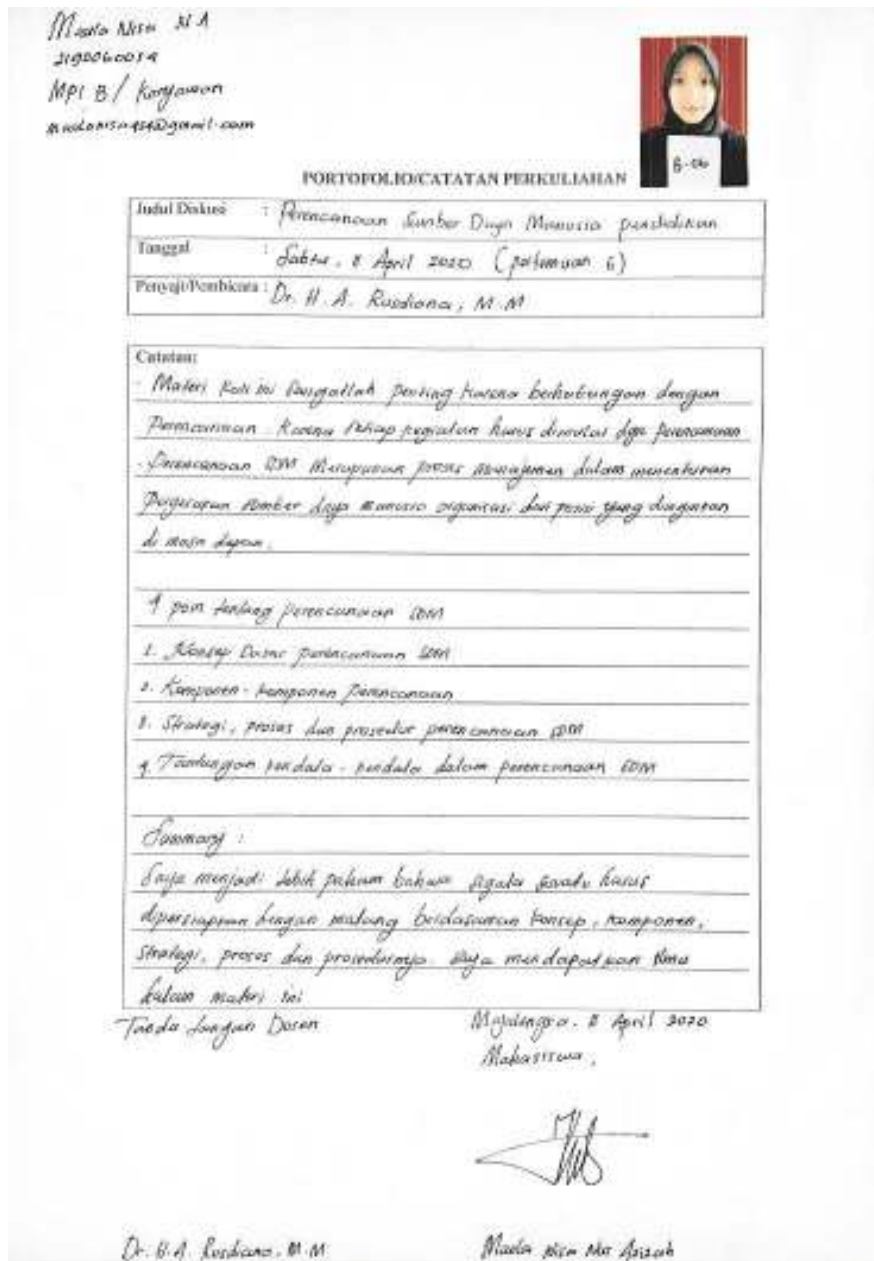 Nisa N A
MPI B / Karyawan
B-06
PORTOFOLIO/CATATAN PERKULIAHAN
Judul Diskusi : Perencanaan Sumber Daya Manusia pendidikan
Tanggal : Sabtu, 8 April 2020 (pertemuan 6)
Penyaji/Pembicara : Dr. H. A. Rusdiana, M.M
Catatan:
- Materi kali ini sangatlah penting karena berhubungan dengan
Perencanaan karena setiap kegiatan harus dimulai dgn perencanaan
- Perencanaan SDM merupakan proses manajemen dalam menentukan
Pergerakan sumber daya manusia organisasi dari posisi yang diinginkan
di masa depan.
4 poin tentang perencanaan SDM
1. Konsep Dasar perencanaan SDM
2. Komponen-komponen perencanaan
3. Strategi, proses dan prosedur perencanaan SDM
4. Tantangan kendala-kendala dalam perencanaan SDM
Summary :
Saya menjadi lebih paham bahwa segala sesuatu harus
dipersiapkan dengan matang berdasarkan konsep, komponen,
strategi, proses dan prosedurnya. saya mendapatkan ilmu
dalam materi ini
Tanda tangan Dosen
Majalengka, 8 April 2020
Mahasiswa,
Dr. H. A. Rusdiana, M.M
Nisa Nur Azizah